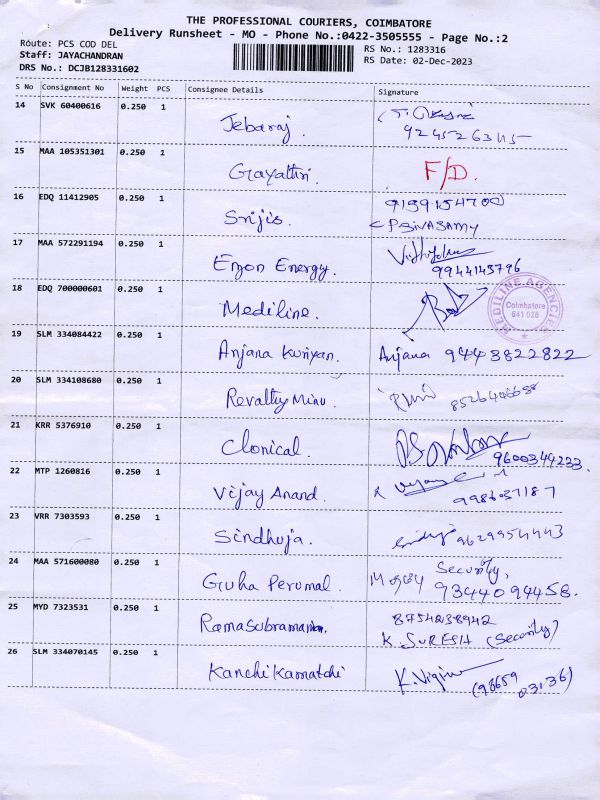 THE PROFESSIONAL COURIERS, COIMBATORE
Delivery Runsheet - MO - Phone No.:0422-3505555 - Page No.:2
Route: PCS COD DEL
Staff: JAYACHANDRAN
DRS No.: DCJB128331602
RS No.: 1283316
RS Date: 02-Dec-2023
S No Consignment No Weight PCS Consignee Details Signature
14 SVK 60400616 0.250 1
Jebaraj.
15 MAA 105351301 0.250 1
Gayathri. F/D.
16 EDQ 11412905 0.250 1 9159154700
Srijis. PSIVASAMY
17 MAA 572291194 0.250 1
Ezon Energy. 9944145796
18 EDQ 700000601 0.250 1
Mediline. MEDILINE AGENCIES Coimbatore 641 028
19 SLM 334084422 0.250 1
Anjana Kuriyan. Anjana 9443822822
20 SLM 334108680 0.250 1
Revathy Minu.
21 KRR 5376910 0.250 1
Clonical. 9600344233.
22 MTP 1260816 0.250 1
Vijay Anand.
23 VRR 7303593 0.250 1
Sindhuja. 9629954443
24 MAA 571600080 0.250 1 Security,
Guha Perumal. 9344094458.
25 MYD 7323531 0.250 1 8754238942
Ramasubramanian. K. SURESH (Security)
26 SLM 334070145 0.250 1
Kanchi Kamatchi (98659 03136)